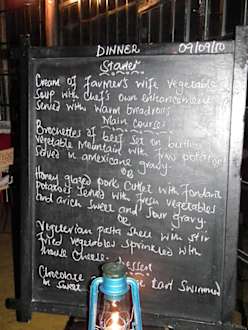 DINNER 09/09/10
Starter
Cream of farmer's wife vegetable
Soup with chef's own enhancement
Served with warm breadrolls
Main course
Brochettes of beef set on butter
vegetable mountain with potatoes
served in americane gravy
OR
Honey glazed pork Cutlet with fondant
potatoes served with fresh vegetables
and a rich sweet and sour gravy
OR
Vegeterian pasta shells with stir
fried vegetables sprinkled with
house Cheese
Dessert
Chocolate tart Swimmed
in sweet